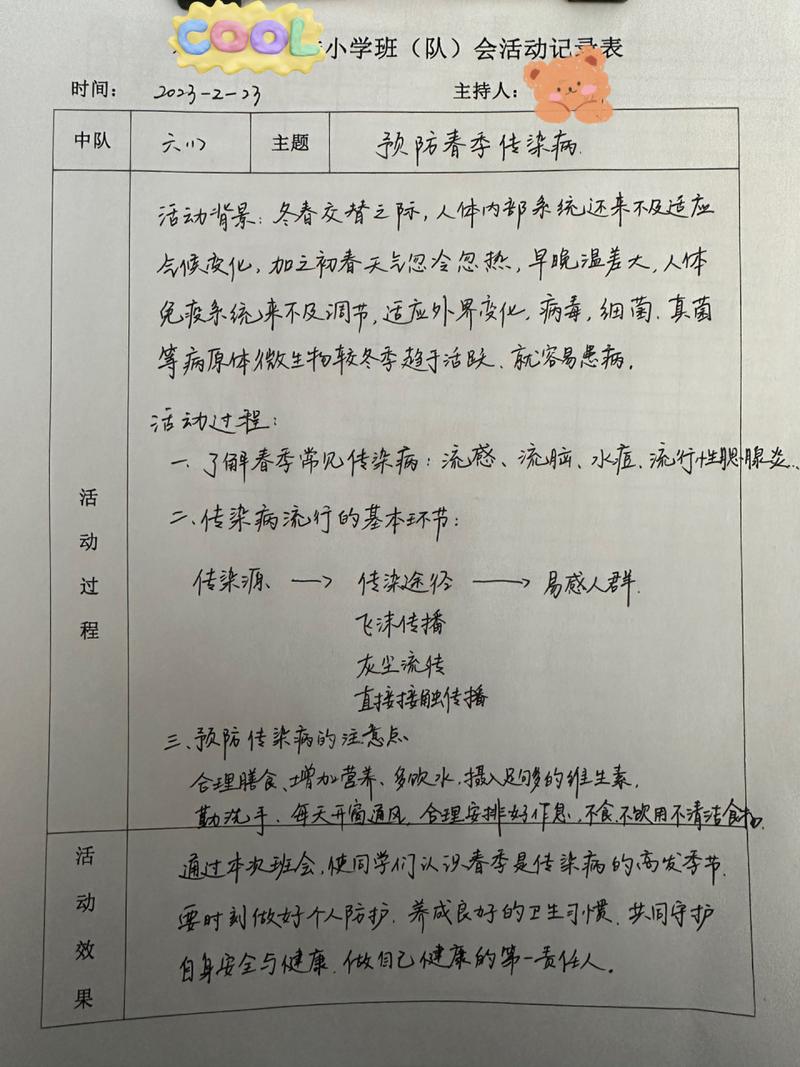 COOL
小学班（队）会活动记录表
时间： 2023-2-23 主持人：
中队 六(1) 主题 预防春季传染病.
活动过程
活动背景：冬春交替之际，人体内部系统还来不及适应
气候变化，加之初春天气忽冷忽热，早晚温差大，人体
免疫系统来不及调节，适应外界变化，病毒，细菌、真菌
等病原体微生物较冬季趋于活跃、就容易患病。
活动过程：
一、了解春季常见传染病：流感、流脑、水痘、流行性腮腺炎...
二、传染病流行的基本环节：
传染源 → 传染途径 → 易感人群.
飞沫传播
灰尘流传
直接接触传播
三、预防传染病的注意点
合理膳食、增加营养、多饮水，摄入足够多的维生素，
勤洗手、每天开窗通风，合理安排好作息，不食、不饮用不清洁食物.
活动效果
通过本次班会，使同学们认识春季是传染病的高发季节.
要时刻做好个人防护. 养成良好的卫生习惯. 共同守护
自身安全与健康. 做自己健康的第一责任人。